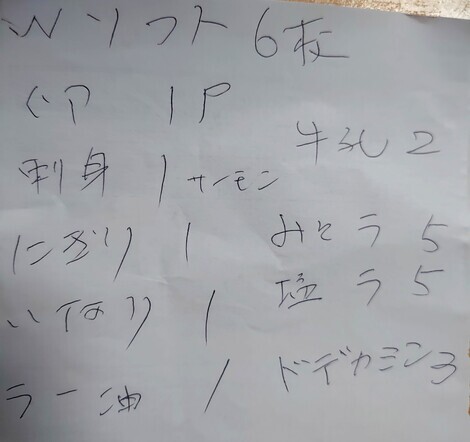 Wソフト 6枚
ベア 1P
刺身 1 サーモン
にぎり 1
いなり 1
ラー油 1
牛乳 2
みそラ 5
塩ラ 5
ドデカミン3